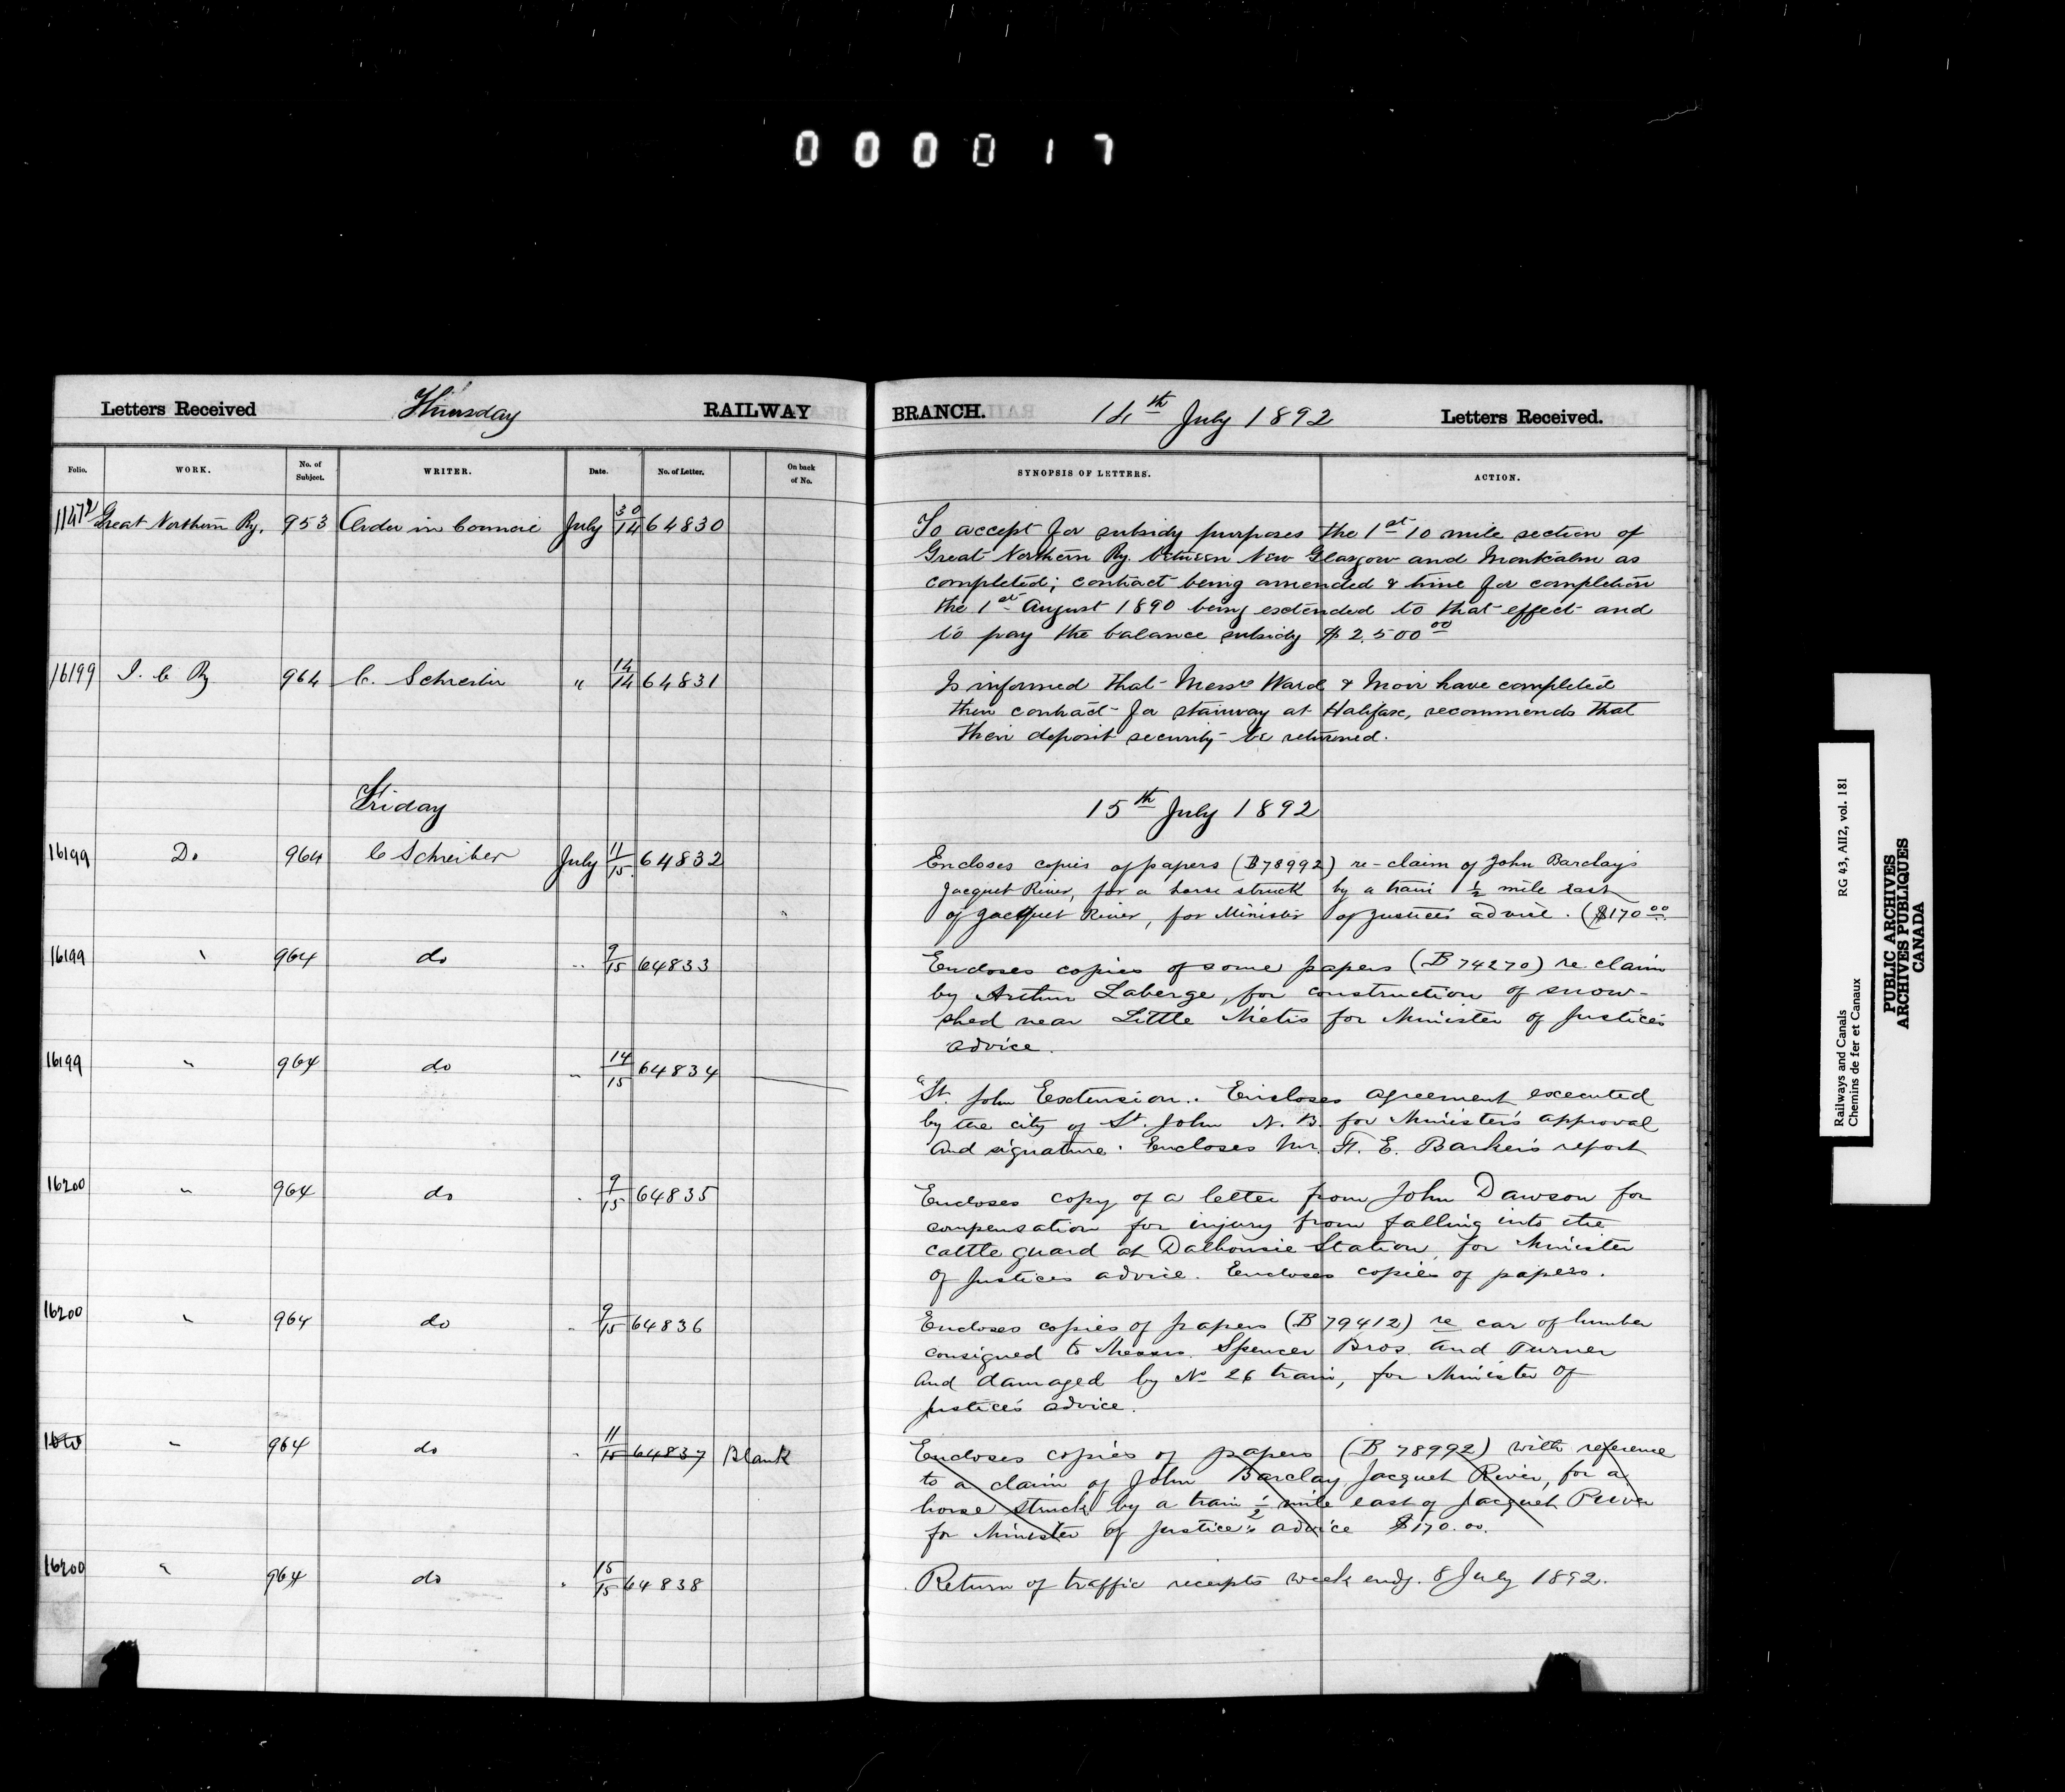 000017
Letters Received Thursday RAILWAY BRANCH. 14th July 1892 Letters Received.
Folio. WORK. No. of Subject. WRITER. Date. No. of Letter. On back of No. SYNOPSIS OF LETTERS. ACTION.
Great Northern Ry. 953 Order in Council July 30/14 64830
To accept for subsidy purposes the 1st 10 mile section of
Great Northern Ry. between New Glasgow and Montcalm as
completed; contract being amended & time for completion
the 1st August 1890 being extended to that effect and
to pay the balance subsidy $2.500 00
16199 I. C Ry 964 C. Schreiber " 14/14 64831
Is informed that Messrs Ward & Moir have completed
their contract for stairway at Halifax, recommends that
their deposit security be returned.
Friday 15th July 1892
16199 Do 964 C Schreiber July 11/15 64832
Encloses copies of papers (B 78992) re-claim of John Barclay's
Jacquet River, for a horse struck by a train 1/2 mile east
of Jacquet River, for Minister of Justice's advice. ($170 00
16199 " 964 do " 9/15 64833
Encloses copies of some papers (B 74270) re. claim
by Arthur Laberge, for construction of snow-
shed near Little Metis for Minister of Justice's
advice.
16199 " 964 do " 14/15 64834
"St. John Extension. Encloses agreement executed
by the city of St. John N. B. for Minister's approval
and signature. Encloses Mr. F. E. Barker's report
16200 " 964 do " 9/15 64835
Encloses copy of a letter from John Dawson for
compensation for injury from falling into the
cattle guard at Dalhousie Station, for Minister
of Justices advice. Encloses copies of papers.
16200 " 964 do " 9/15 64836
Encloses copies of papers (B 79412) re car of lumber
consigned to Messrs. Spencer Bros. and Turner
and damaged by No 26 train, for Minister of
Justice's advice.
964 do " 11/15 64837 Blank
Encloses copies of papers (B 78992) with reference
to a claim of John Barclay Jacquet River, for a
horse struck by a train 1/2 mile east of Jacquet River
for Minister of Justice's advice $170.00.
16200 " 964 do " 15/15 64838
Return of traffic receipts week endg. 8 July 1892.
Railways and Canals RG 43, AII2, vol. 181
Chemins de fer et Canaux
PUBLIC ARCHIVES
ARCHIVES PUBLIQUES
CANADA